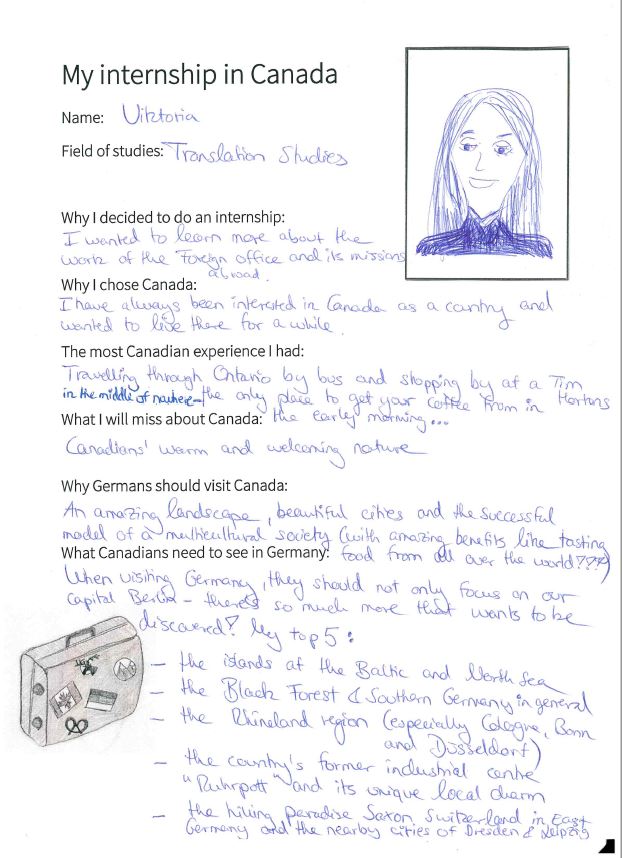 My internship in Canada
Name: Viktoria
Field of studies: Translation Studies
Why I decided to do an internship:
I wanted to learn more about the
work of the Foreign office and its missions
abroad.
Why I chose Canada:
I have always been interested in Canada as a country and
wanted to live there for a while.
The most Canadian experience I had:
Travelling through Ontario by bus and stopping by at a Tim Hortons
in the middle of nowhere – the only place to get your coffee from in
What I will miss about Canada: the early morning...
Canadians' warm and welcoming nature
Why Germans should visit Canada:
An amazing landscape, beautiful cities and the successful
model of a multicultural society (with amazing benefits like tasting
food from all over the world???)
What Canadians need to see in Germany:
When visiting Germany, they should not only focus on our
capital Berlin – there's so much more that wants to be
discovered! My top 5:
– the islands at the Baltic and North Sea
– the Black Forest & Southern Germany in general
– the Rhineland region (especially Cologne, Bonn
and Düsseldorf)
– the country's former industrial centre
"Ruhrpott" and its unique local charm
– the hiking paradise Saxon Switzerland in East
Germany and the nearby cities of Dresden & Leipzig